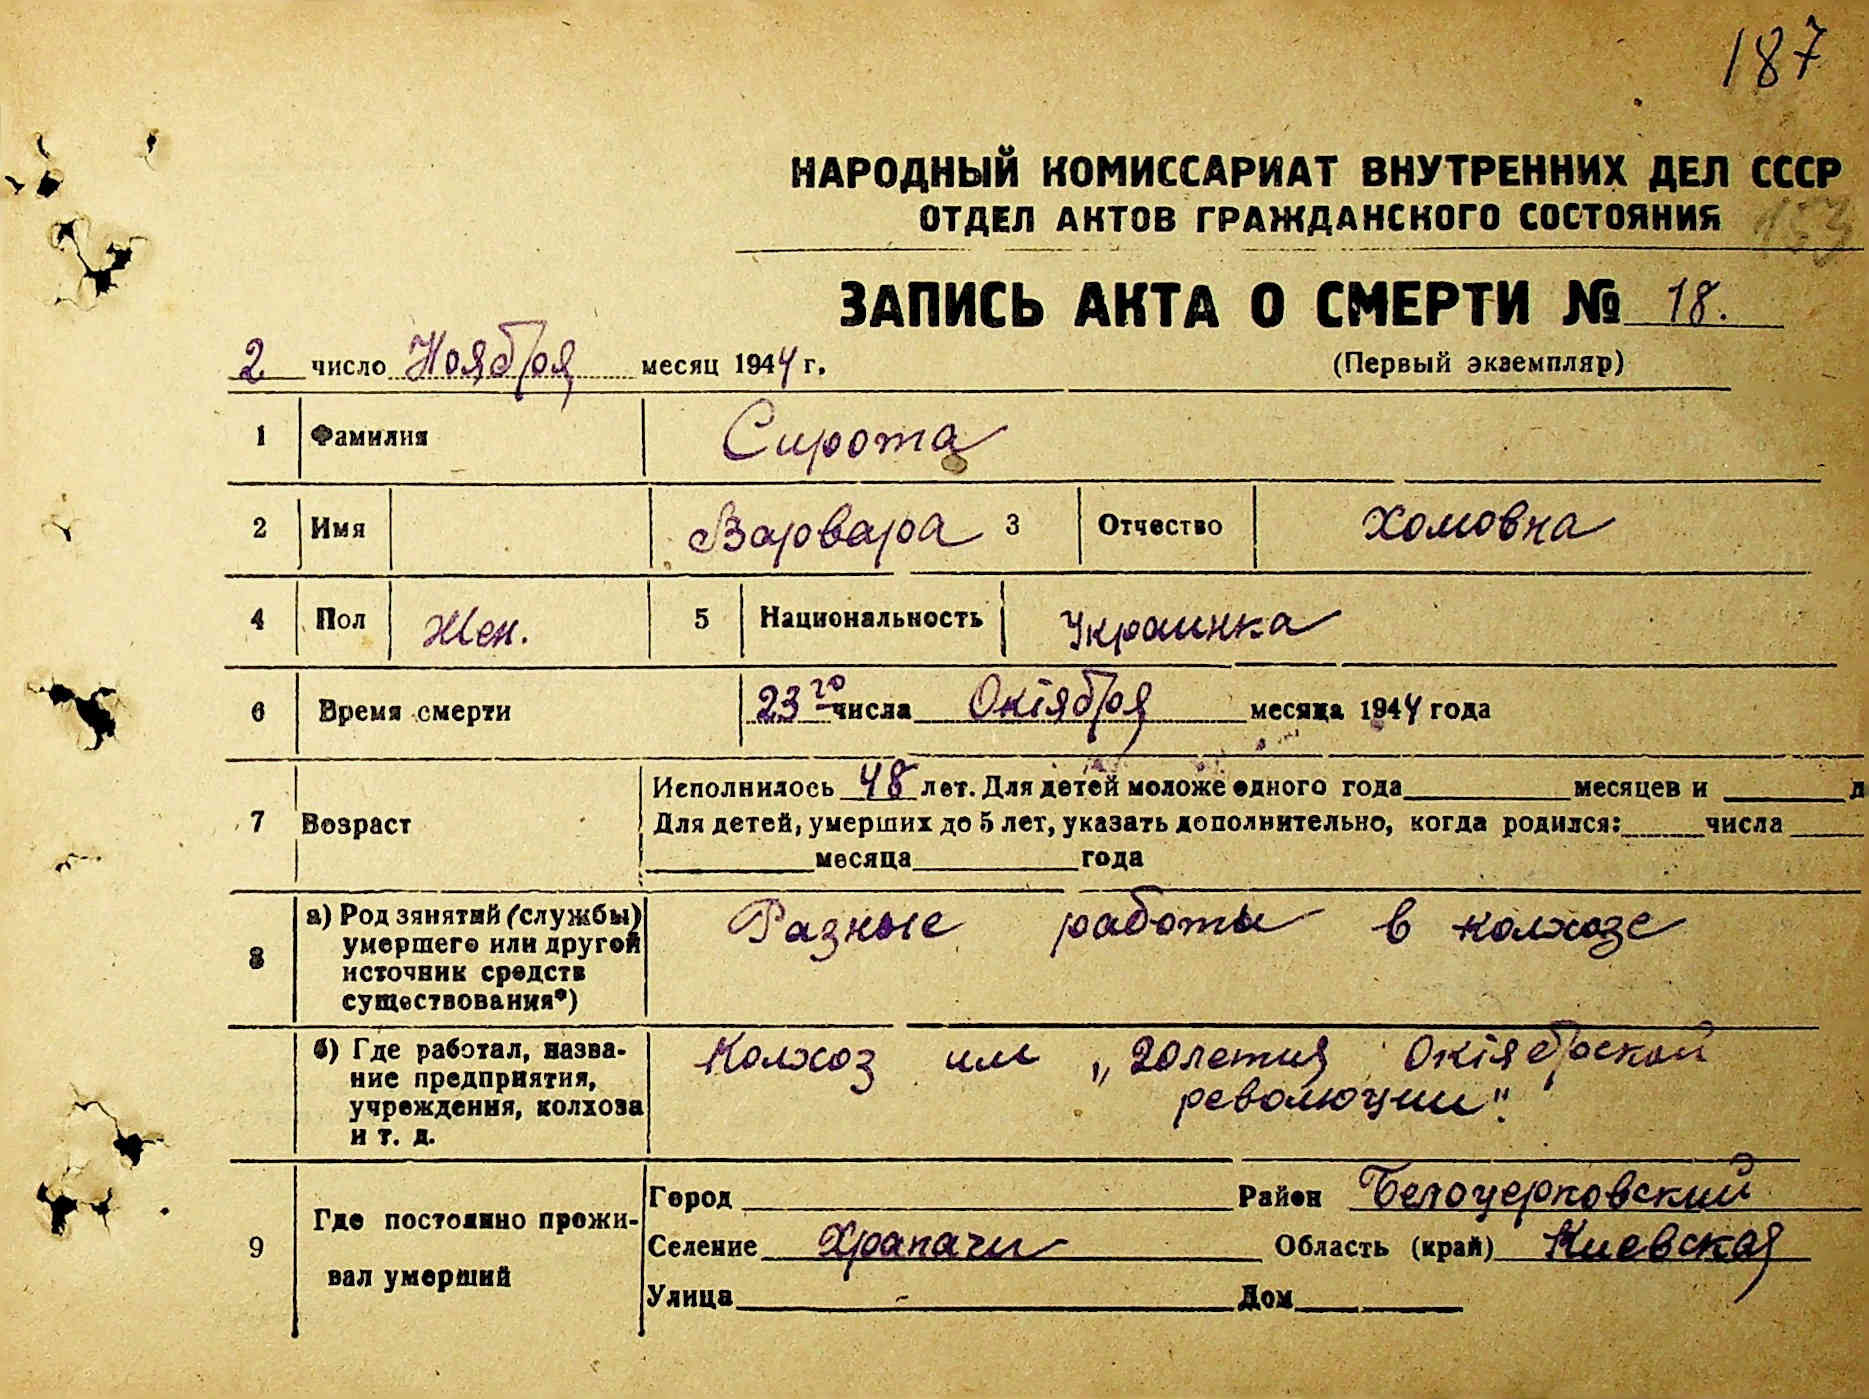 187
НАРОДНЫЙ КОМИССАРИАТ ВНУТРЕННИХ ДЕЛ СССР
ОТДЕЛ АКТОВ ГРАЖДАНСКОГО СОСТОЯНИЯ
ЗАПИСЬ АКТА О СМЕРТИ № 18.
2 число Ноября месяц 1944 г.
(Первый экземпляр)
1 Фамилия Сирота
2 Имя Варвара 3 Отчество Хомовна
4 Пол Жен. 5 Национальность Украинка
6 Время смерти 23го числа Октября месяца 1944 года
7 Возраст Исполнилось 48 лет. Для детей моложе одного года месяцев и д
Для детей, умерших до 5 лет, указать дополнительно, когда родился: числа
месяца года
8 а) Род занятий (службы) умершего или другой источник средств существования*) Разные работы в колхозе
б) Где работал, название предприятия, учреждения, колхоза и т. д. Колхоз им „20летия Октябрьской
революции".
9 Где постоянно проживал умерший
Город Район Белоцерковский
Селение Храпачи Область (край) Киевская
Улица - Дом